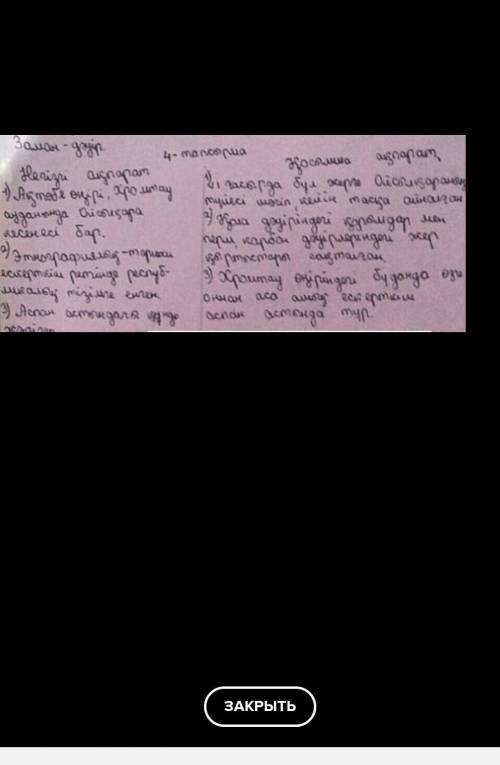 Заман - дәуір
4- тапсырма
Негізгі ақпарат
1) Ақтөбе өңірі, Хромтау
ауданында Айшықара
кесенесі бар.
2) Этнографиялық - тарихи
ескерткіш ретінде респуб-
ликалық тізімге енген.
3) Аспан астындағы
Қосымша ақпарат.
ғасырда бұл жерге
түйесі шөгіп, кейін тасқа айналған
2) Құла дәуіріндегі құрымдар мен
перм, карбон дәуірлеріндегі жер
қыртыстары сақталған.
3) Хромтау өңіріндегі бұданда өзге
оннан аса ескерткіш
аспан астында тұр.
ЗАКРЫТЬ